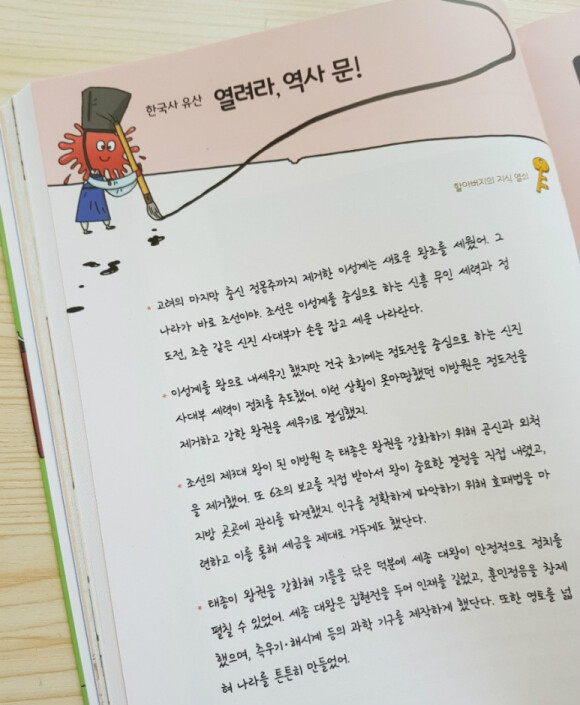 한국사 유산 열려라, 역사 문!
할아버지의 지식 열쇠
고려의 마지막 충신 정몽주까지 제거한 이성계는 새로운 왕조를 세웠어. 그
나라가 바로 조선이야. 조선은 이성계를 중심으로 하는 신흥 무인 세력과 정
도전, 조준 같은 신진 사대부가 손을 잡고 세운 나라란다.
이성계를 왕으로 내세우긴 했지만 건국 초기에는 정도전을 중심으로 하는 신진
사대부 세력이 정치를 주도했어. 이런 상황이 못마땅했던 이방원은 정도전을
제거하고 강한 왕권을 세우기로 결심했지.
조선의 제3대 왕이 된 이방원 즉 태종은 왕권을 강화하기 위해 공신과 외척
을 제거했어. 또 6조의 보고를 직접 받아서 왕이 중요한 결정을 직접 내렸고,
지방 곳곳에 관리를 파견했지. 인구를 정확하게 파악하기 위해 호패법을 마
련하고 이를 통해 세금을 제대로 거두게도 했단다.
태종이 왕권을 강화해 기틀을 닦은 덕분에 세종 대왕이 안정적으로 정치를
펼칠 수 있었어. 세종 대왕은 집현전을 두어 인재를 길렀고, 훈민정음을 창제
했으며, 측우기·해시계 등의 과학 기구를 제작하게 했단다. 또한 영토를 넓
혀 나라를 튼튼히 만들었어.